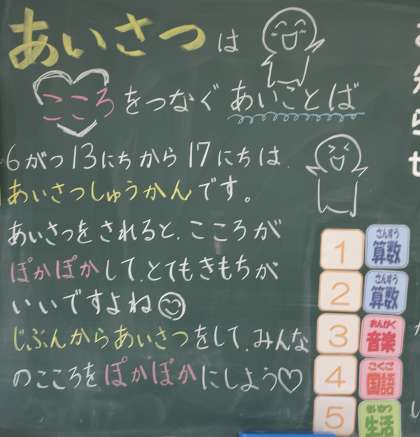 あいさつは
こころをつなぐあいことば
6がつ13にちから17にちは
あいさつしゅうかんです。
あいさつをされると、こころが
ぽかぽかして、とてもきもちが
いいですよね
じぶんからあいさつをして、みんな
のこころをぽかぽかにしよう♡
1 さんすう 算数
2 さんすう 算数
3 おんがく 音楽
4 こくご 国語
5 せいかつ 生活
らせ